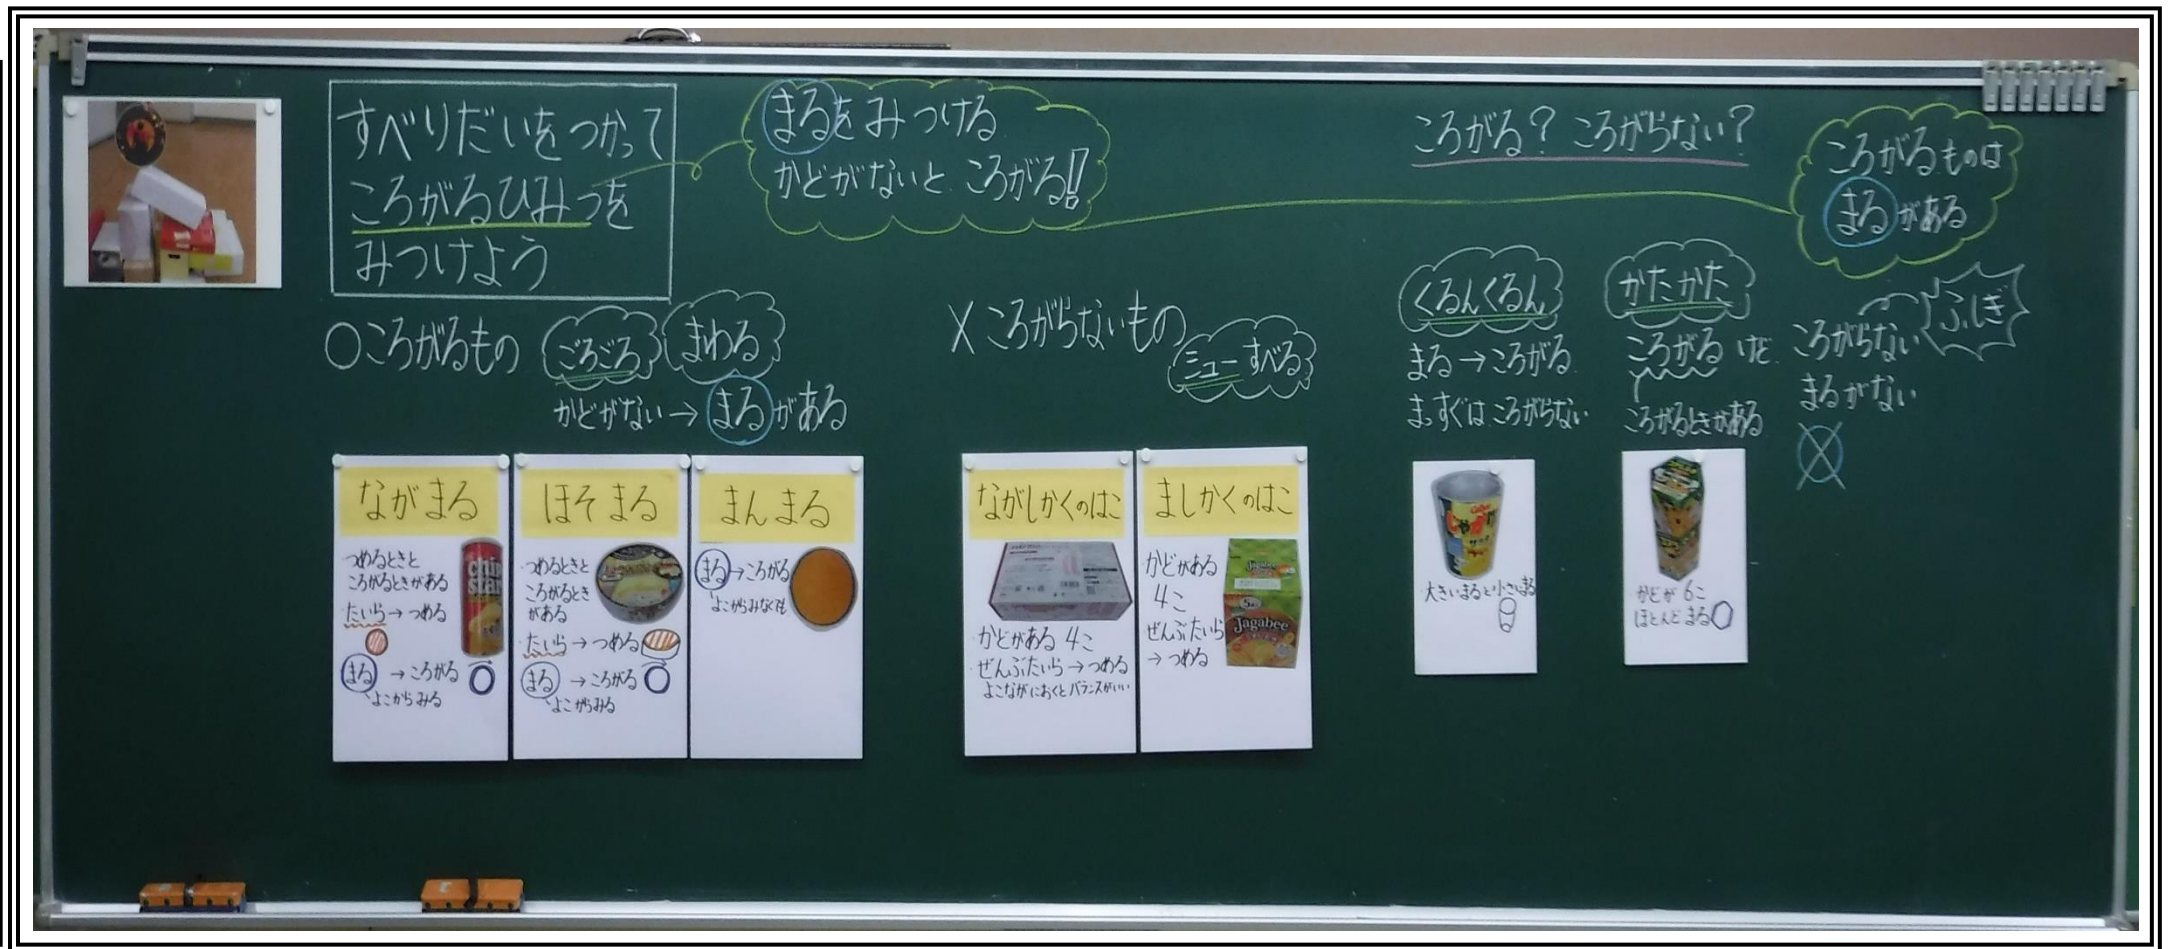 すべりだいをつかって
ころがるひみつを
みつけよう
まるをみつける
かどがないところがる!!
ころがる？ころがらない？
ころがるものは
まるがある
○ころがるもの
ごろごろ
まわる
かどがない→まるがある
×ころがらないもの
ミューすべる
くるんくるん
まる→ころがる
まっすぐはころがらない
かたかた
ころがるけど
ころがるときがある
ふしぎ
ころがらない
まるがない
ながまる
つめるときと
ころがるときがある
たいら→つめる
まる→ころがる
よこからみる
chip
star
ほそまる
つめるときと
ころがるとき
がある
たいら→つめる
まる→ころがる
よこからみる
まんまる
まる→ころがる
よこからみなくても
ながしかくのはこ
かどがある 4こ
ぜんぶたいら→つめる
よこながにおくとバランスがいい
ましかくのはこ
かどがある
4こ
ぜんぶたいら
→つめる
Jagabee
5
Jagabee
Calbee
じゃがりこ
大きいまると小さいまる
かどが6こ
ほとんどまる